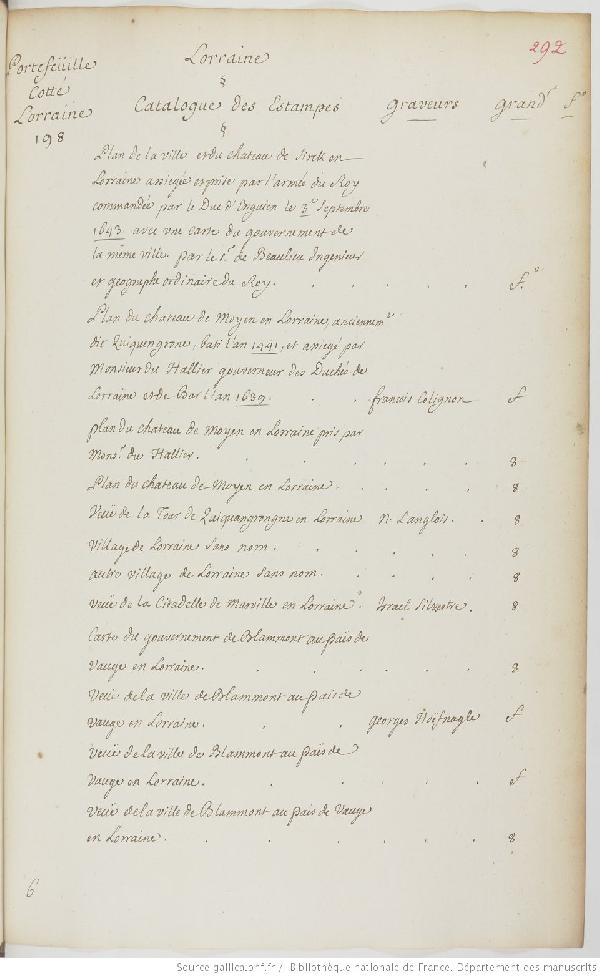 292
Portefeüille
Cotté
Lorraine
198
Lorraine
§
Catalogue des Estampes graveurs grandr fo
§
Plan de la ville et du chateau de Sirck en
Lorraine assiegée et prise par l'armée du Roy
commandée par le Duc d'Enguien le 3e Septembre
1643. avec une carte du gouvernement de
la même ville par le Sr. de Beaulieu Ingenieur
et geographe ordinaire du Roy. . . . . . f.o
Plan du chateau de Moyen en Lorraine, anciennemt
dit Quiquengrone, bati l'an 1441, et assiegé par
Monsieur du Hallier gouverneur des Duchés de
Lorraine et de Bar l'an 1639. . . francois Colignon f
plan du chateau de Moyen en Lorraine pris par
Monsr. du Hallier. . . . . . 8
Plan du chateau de Moyen en Lorraine. . . . . 8
Veüe de la Tour de Quiquangrongne en Lorraine N. Langlois. . 8
Village de Lorraine sans nom. . . . . 8
autre village de Lorraine sans nom. . . . . 8
veüe de la Citadelle de Marville en Lorraine. Israel Silvestre. 8
Carte du gouvernement de Blammont au païs de
Vauge en Lorraine. . . . . . 8
Veüe de la ville de Blammont au païs de
vauge en Lorraine. . . georges Hoefnagle f
Veüe de la ville de Blammont au païs de
Vauge en Lorraine. . . . . . f
Veüe de la ville de Blammont au païs de Vauge
en Lorraine. . . . . . . 8
6
Source gallica.bnf.fr / Bibliothèque nationale de France. Département des manuscrits